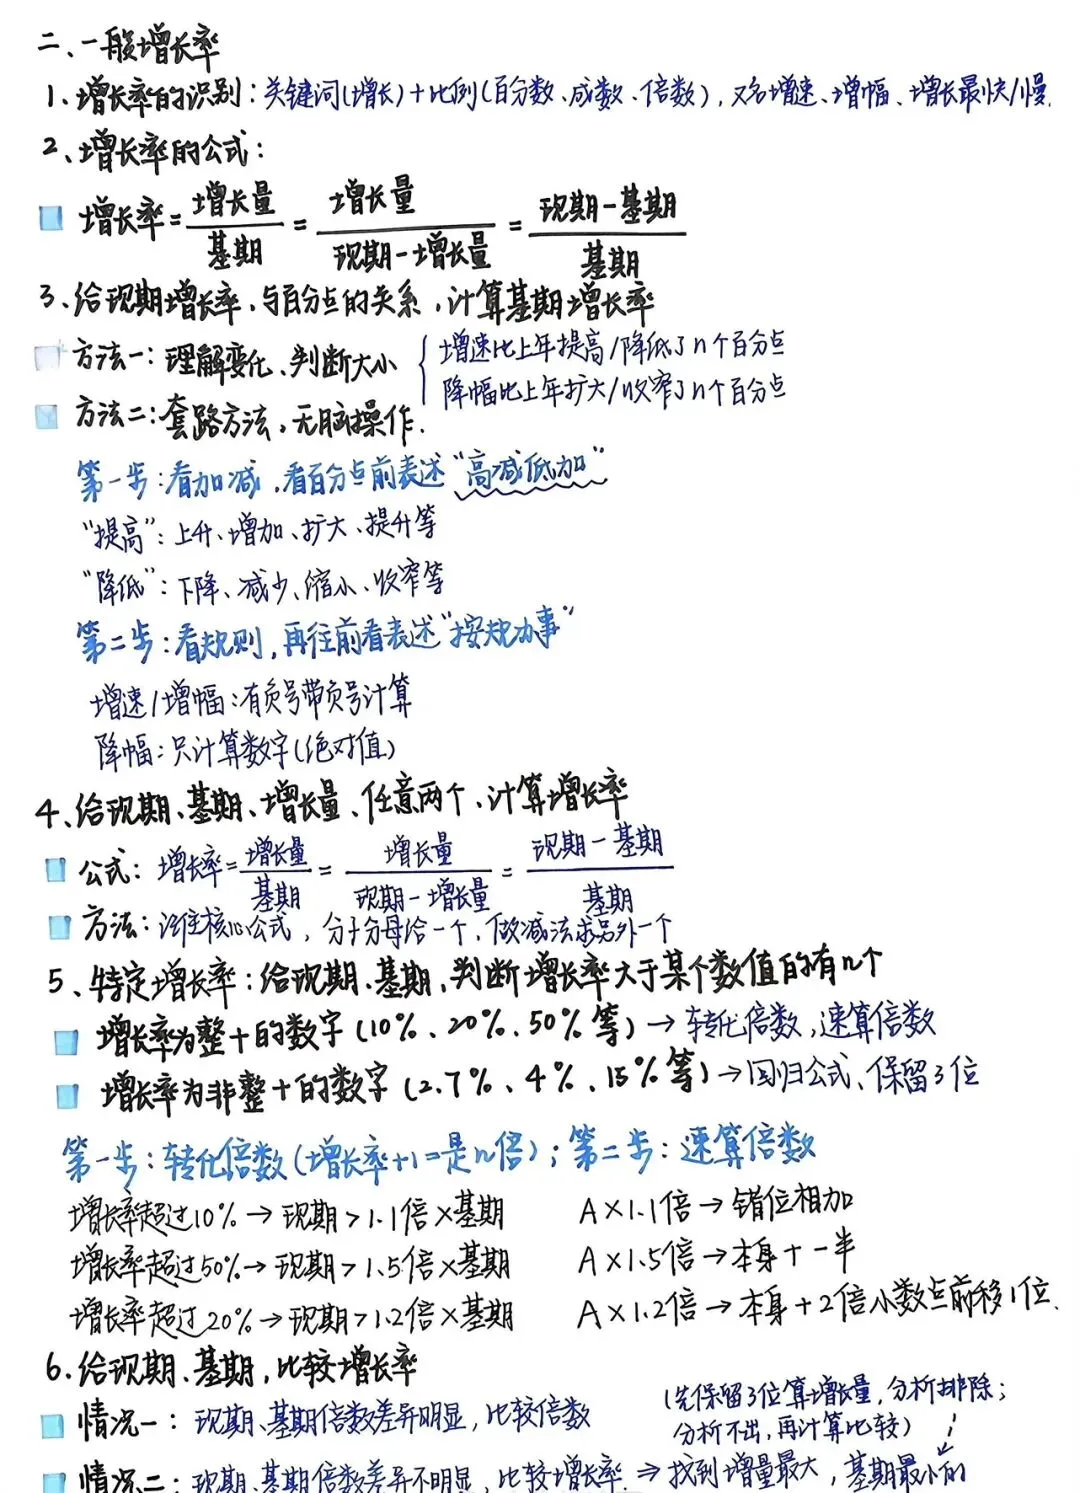 二、一般增长率
1、增长率的识别：关键词(增长)+比例(百分数、成数、倍数)，又名增速、增幅、增长最快/慢.
2、增长率的公式：
增长率=增长量/基期=增长量/现期-增长量=现期-基期/基期
3、给现期增长率、与百分点的关系，计算基期增长率
方法一：理解变化、判断大小 { 增速比上年提高/降低了n个百分点
降幅比上年扩大/收窄了n个百分点
方法二：套路方法，无脑操作.
第一步：看加减，看百分点前表述"高减低加"
"提高"：上升、增加、扩大、提升等
"降低"：下降、减少、缩小、收窄等
第二步：看规则，再往前看表述"按规办事"
增速/增幅：有负号带负号计算
降幅：只计算数字(绝对值)
4、给现期、基期、增长量、任意两个、计算增长率
公式：增长率=增长量/基期=增长量/现期-增长量=现期-基期/基期
方法：记住核心公式，分子分母给一个，做减法求另外一个
5、特定增长率：给现期、基期，判断增长率大于某个数值的有n个
增长率为整十的数字(10%、20%、50%等)→转化倍数，速算倍数
增长率为非整十的数字(2.7%、4%、15%等)→回归公式、保留3位
第一步：转化倍数(增长率+1=是n倍)；第二步：速算倍数
增长率超过10%→现期>1.1倍×基期 A×1.1倍→错位相加
增长率超过50%→现期>1.5倍×基期 A×1.5倍→本身+一半
增长率超过20%→现期>1.2倍×基期 A×1.2倍→本身+2倍小数点前移1位.
6、给现期、基期，比较增长率
情况一：现期、基期倍数差异明显，比较倍数
(先保留3位算增长量，分析排除；
分析不出，再计算比较)
情况二：现期、基期倍数差异不明显，比较增长率 ⇒ 找到增量最大，基期最小的